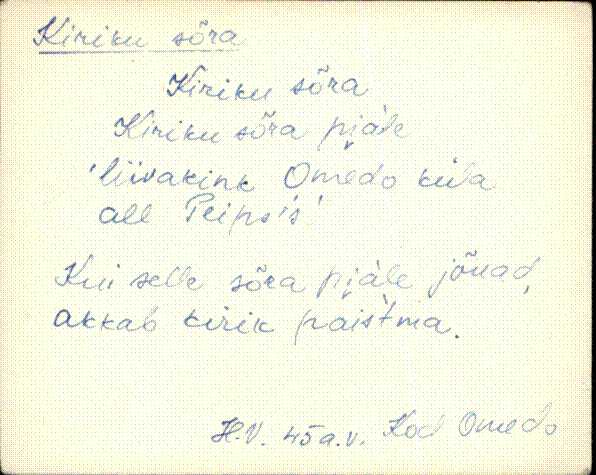 Kiriku sõra
Kiriku sõra
Kiriku sõra pi̬äle
'liivakink Omedo küla
all Peips's'
Kui selle sõra pi̬äle jõuad,
akkab kirik pais't'ma.
H.V. 45 a.v. Kod Omedo